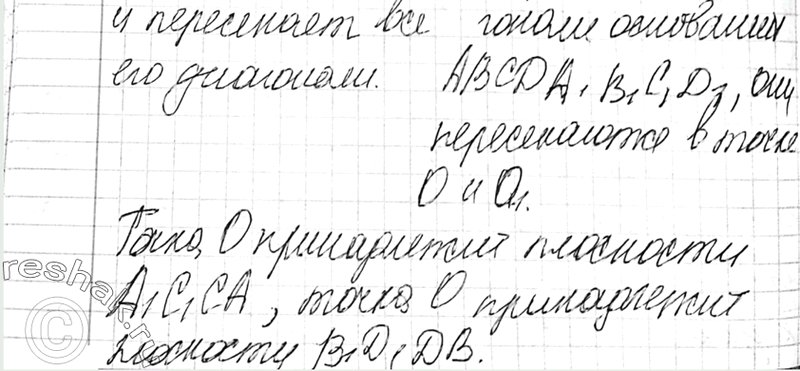 и пересекает все гонали основания
его диагонали. ABCDA₁B₁C₁D₁, они
пересекаются в точке
O и O₁.
Точка O принадлежит плоскости
A₁C₁CA, точка O принадлежит
плоскости B₁D₁DB.
reshak.ru
©